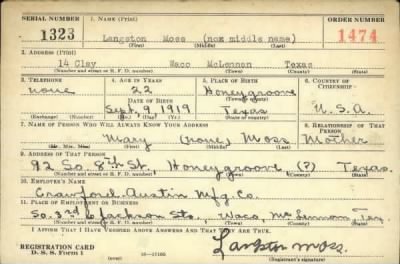 SERIAL NUMBER 1. NAME (Print) ORDER NUMBER
1323 Langston Moss (nox middle name) 1474
(First) (Middle) (Last)
2. ADDRESS (Print)
14 Clay Waco McLennon Texas
(Number and street or R. F. D. number) (Town) (County) (State)
3. TELEPHONE 4. AGE IN YEARS 5. PLACE OF BIRTH 6. COUNTRY OF CITIZENSHIP
none 22 Honeygroove
DATE OF BIRTH (Town or county)
Sept. 9, 1919 Texas U.S.A.
(Exchange) (Number) (Mo.) (Day) (Yr.) (State or country)
7. NAME OF PERSON WHO WILL ALWAYS KNOW YOUR ADDRESS 8. RELATIONSHIP OF THAT PERSON
Mary (none) Moss Mother
(Mr., Mrs., Miss) (First) (Middle) (Last)
9. ADDRESS OF THAT PERSON
92 So. 8th St., Honeygroove (?) Texas
(Number and street or R. F. D. number) (Town) (County) (State)
10. EMPLOYER'S NAME
Crawford-Austin Mfg Co.
11. PLACE OF EMPLOYMENT OR BUSINESS
So. 3rd & Jackson Sts., Waco,
(Number and street or R. F. D. number) (Town) (County) (State)
I AFFIRM THAT I HAVE VERIFIED ABOVE ANSWERS AND THAT THEY ARE TRUE.
REGISTRATION CARD
D. S. S. Form 1
Langston Moss.
(Registrant's signature)